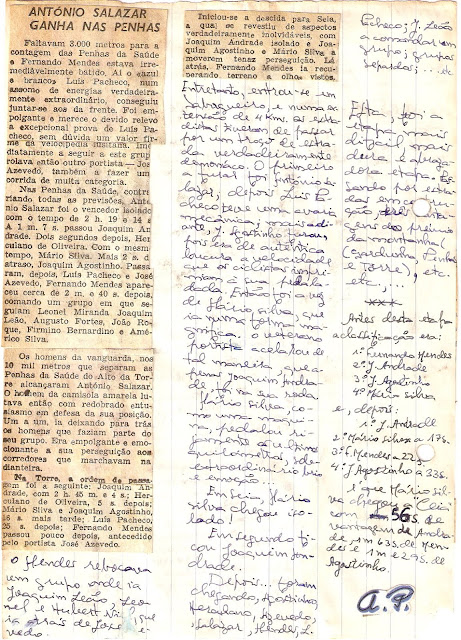 ANTÓNIO SALAZAR
GANHA NAS PENHAS
Faltavam 3.000 metros para a
contagem das Penhas da Saúde
e Fernando Mendes estava irre-
mediàvelmente batido. Aí o «azul
e branco» Luís Pacheco, num
assomo de energias verdadeira-
mente extraordinário, conseguiu
juntar-se aos da frente. Foi em-
polgante e merece o devido relevo
a excepcional prova de Luís Pa-
checo, sem dúvida um valor fir-
me da velocipedia lusitana. Ime-
diatamente a seguir a este grup
rolava então outro portista — Jos
Azevedo, também a fazer um
corrida de muita categoria.
Nas Penhas da Saúde, contra-
riando todas as previsões, Antó-
nio Salazar foi o vencedor isolado
com o tempo de 2 h. 19 e 14 s
A 1 m. 7 s. passou Joaquim An-
drade. Dois segundos depois, Her-
culano de Oliveira. Com o mesm
tempo, Mário Silva. Mais 2 s. d
atraso, Joaquim Agostinho. Passa
ram, depois, Luís Pacheco e José
Azevedo, Fernando Mendes apare-
ceu cerca de 2 m. e 40 s. depois,
comando um grupo em que se-
guiam Leonel Miranda Joaquim
Leão, Augusto Fortes, João Ro-
que, Firmino Bernardino e Amé-
rico Silva.
Os homens da vanguarda, nos
10 mil metros que separam as
Penhas da Saúde do Alto da Tor-
re alcançaram António Salazar.
O homem da camisola amarela lu-
tava então com redobrado entu-
siasmo em defesa da sua posição.
Um a um, ia deixando para trás
os homens que faziam parte do
seu grupo. Era empolgante e emo-
cionante a sua perseguição aos
corredores que marchavam na
dianteira.
Na Torre, a ordem de passa-
gem foi a seguinte: Joaquim An-
drade, com 2 h. 45 m. e 4 s.; Her-
culano de Oliveira, 5 s. depois;
Mário Silva e Joaquim Agostinho,
s. mais tarde; Luís Pacheco
25 s. depois; Fernando Mendes
passou pouco depois, antecedido
pelo portista José Azevedo.
O Mendes rebocava
um grupo onde ia
Joaquim Leão, Leo-
nel e Hubert
ia atrás de José
vedo.
Iniciou-se a descida para Seia,
a qual se revestiu de aspectos
verdadeiramente inolvidáveis, com
Joaquim Andrade isolado e Joa-
quim Agostinho e Mário Silva, a
moverem tenaz perseguição. Lá
atrás, Fernando Mendes ia recu-
perando terreno a olhos vistos.
Entretanto, entrou-se em
Sabugueiro, e numa ex-
tensão de 4 km. os este-
distas tiveram de passar
por um troço de estra-
da verdadeiramente
demoníaco. O primeiro
a passar foi António Sa-
lazar, depois Luís Pa-
checo teve uma avaria
mecânica, e mais adian-
te, J. Agostinho furou,
pois era de autêntica
loucura a velocidade
que os ciclistas impri-
miam à sua pedala-
da. Então foi a vez
de Mário Silva, que
ia numa forma ma-
gnífica. o veterano
portista acelarou de
tal maneira, que a
frenar Joaquim Andra-
de, foi na sua roda.
Mário Silva, co-
mo uma máqui-
na, pedalou ri-
jamente os últimos
quilómetros de
extraordinário brio
e emoção.
Em Seia, Mário
Silva chegou iso-
lado.
Em segundo fi-
cou Joaquim An-
drade.
Depois foram
chegando, Agostinho,
Herculano, Azevedo,
Salazar, Mendes, L.
Pacheco; J. Leão
a comandar um
grupo; grupos
separados; etc.
Esta, foi a
etapa mais
difícil, mais
dura, e traiço-
eira etapa. Pas-
sando por estra-
das em constru-
ção, três conta-
gens do prémio
da montanha
(Gardunha, Penhas
e Torre), etc.
etc,...
xxx
Antes desta etapa
a classificação era:
1º Fernando Mendes
2º J. Andrade
3º J. Agostinho
4º Mário Silva
e, depois:
1º J. Andrade
2º Mário Silva a 17s.
3º F. Mendes a 22s.
4º J. Agostinho a 33s.
é que Mário Sil-
va chegou a Ceia
com 56 s. de
vantagem de Andra-
de 1m e 33s. de Men-
des e 1m e 29s. de
Agostinho.
A.P.